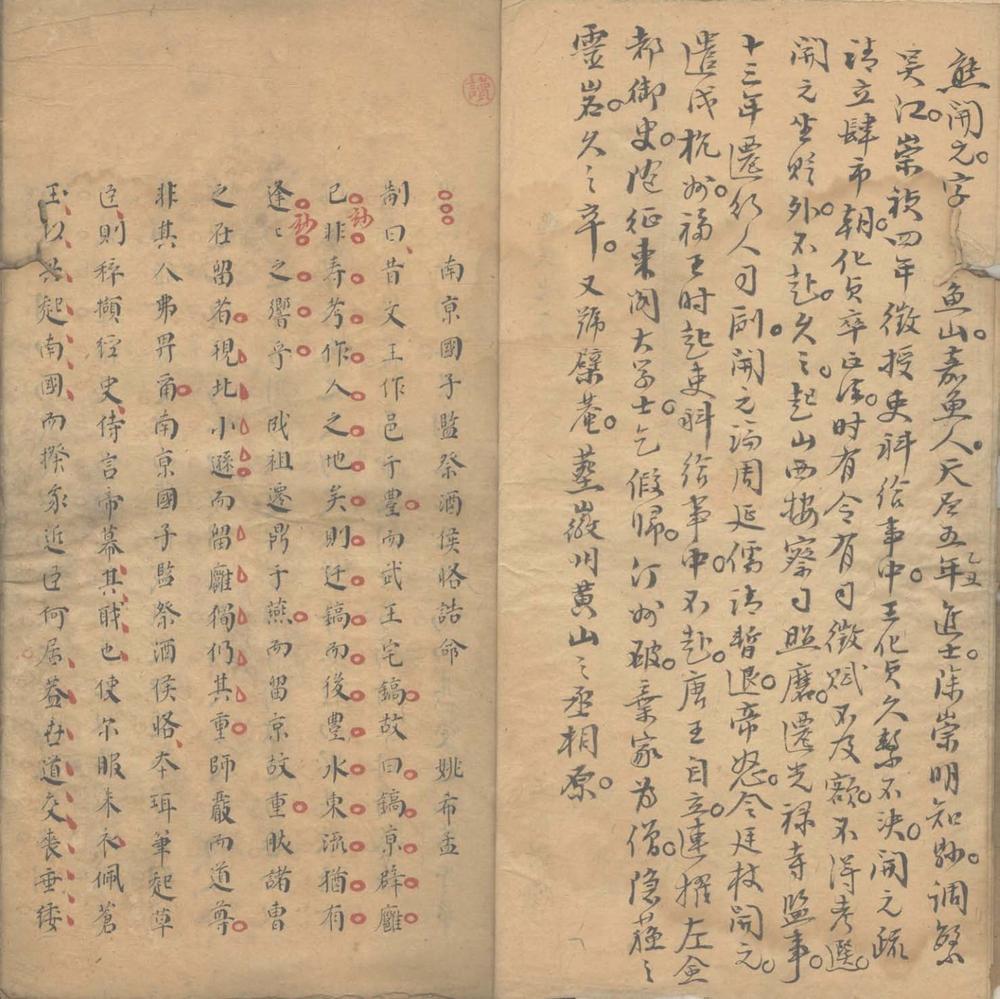 熊開元。字魚山。嘉魚人。天启五年乙丑進士。除崇明知縣。調繁
吴江。崇禎四年徵授吏科给事中。王化貞久繫不决。開元疏
请立肆市朝。化貞卒正法。时有令有司徵赋不及额。不得考選。
開元坐贬外。不赴。久之。起山西按察司照磨。遷光禄寺監事。
十三年遷行人司副。開元论周延儒请暂退。帝怒。令廷杖開元。
遣戍杭州。福王时起吏科给事中。不赴。唐王自立。連擢左佥
都御史。随征東阁大学士。乞假归。汀州破。棄家为僧。隐蘇之
靈岩。久之卒。又號檗菴。墓徽州黄山之丞相原。
讀
南京國子監祭酒侯恪誥命 姚希孟
制曰昔文王作邑于豊而武王宅鎬故曰鎬京辟廱
已非寿考作人之地矣則迁鎬而後豊水東流猶有
妙
逢逢之響乎 成祖遷鼎于燕而留京故重朕諸曹
妙
之在留者視北小遜而留廱獨仍其重師嚴而道尊
非其人弗畀甭南京國子監祭酒侯恪本珥筆起草
臣則稡擷經史侍言帝幕其职也使尔服朱衣佩蒼
玉以興起南國而揆家近臣何居蓋在道交丧垂緌